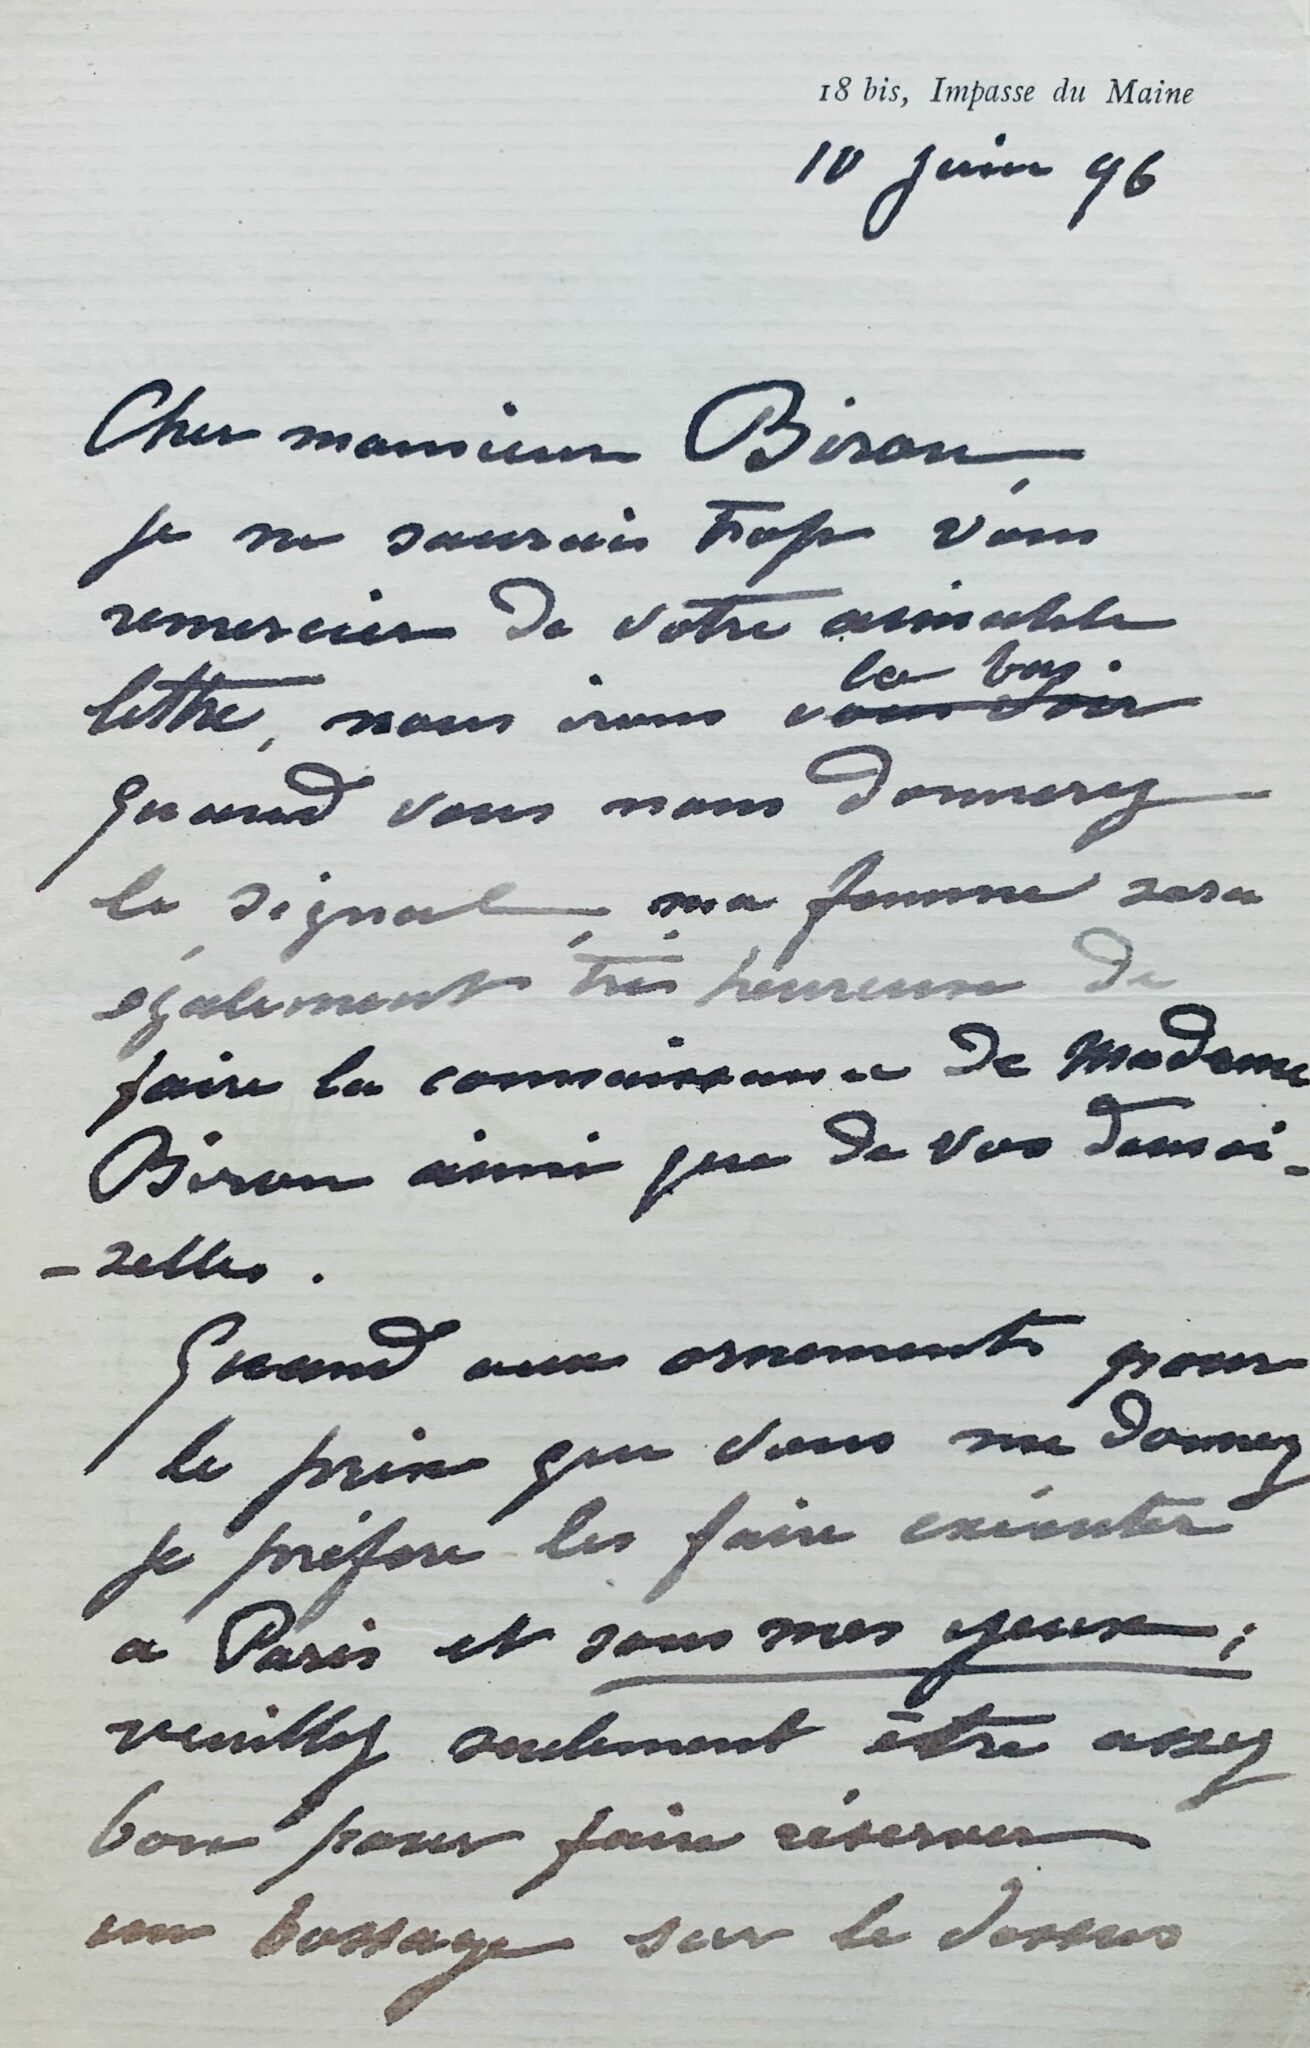 18 bis, Impasse du Maine
10 juin 96
Cher monsieur Biron,
je ne saurais trop vous
remercier de votre aimable
lettre, nous irons la bas vous voir
quand vous nous donnerez
le signal, ma femme sera
également très heureuse de
faire la connaissance de Madame
Biron ainsi que de vos demoi-
-selles.
Quand aux ornements pour
le prix que vous me donnez
je préfère les faire exécuter
a Paris et sous mes yeux ;
veuillez seulement être assez
bon pour faire réserver
un bossage sur le dessus